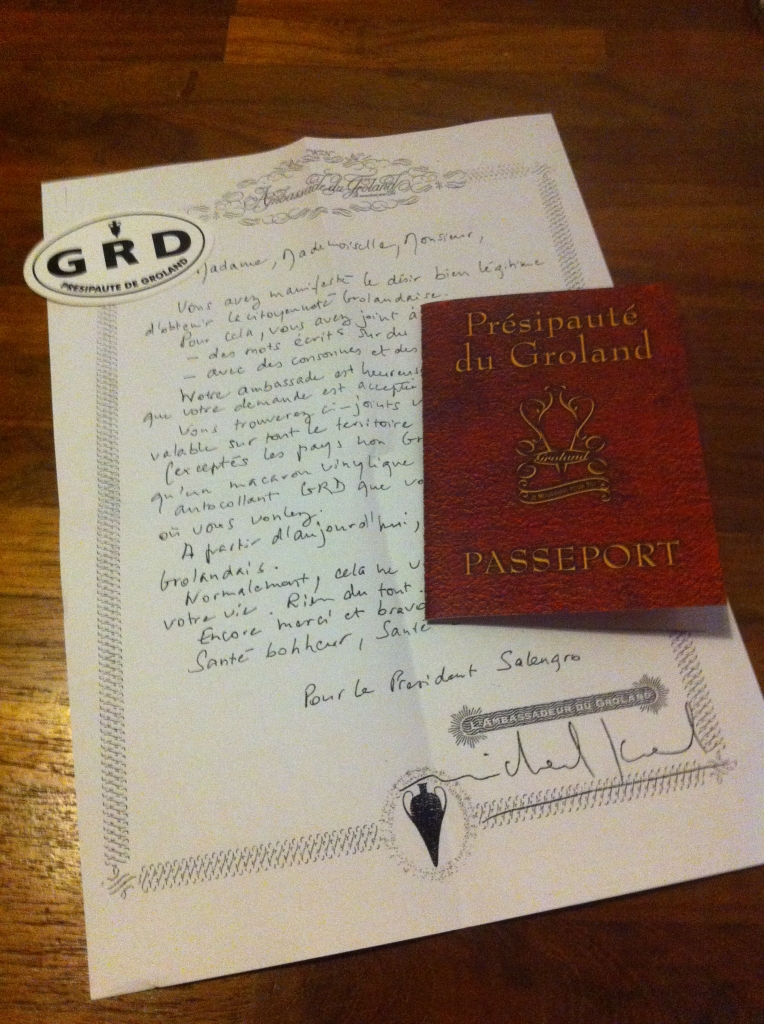 Ambassade du Groland
GRD
PRÉSIPAUTE DE GROLAND
Madame, Mademoiselle, Monsieur,
Vous avez manifesté le désir bien légitime
d'obtenir la citoyenneté Grolandaise.
Pour cela, vous avez joint à
- des mots écrits sur du
- avec des consonnes et des
Notre ambassade est heureus
que votre demande est acceptée
Vous trouverez ci-joints
valable sur tout le territoire
(exceptés les pays non Gr
qu'un macaron vinylique
autocollant GRD que vo
où vous voulez.
A partir d'aujourd'hui,
Grolandais.
Normalement, cela ne v
votre vie. Rien du tout.
Encore merci et bravo
Santé bonheur, Santé
Pour le President Salengro
L'AMBASSADEUR DU GROLAND
Présipauté
du Groland
Groland
PASSEPORT